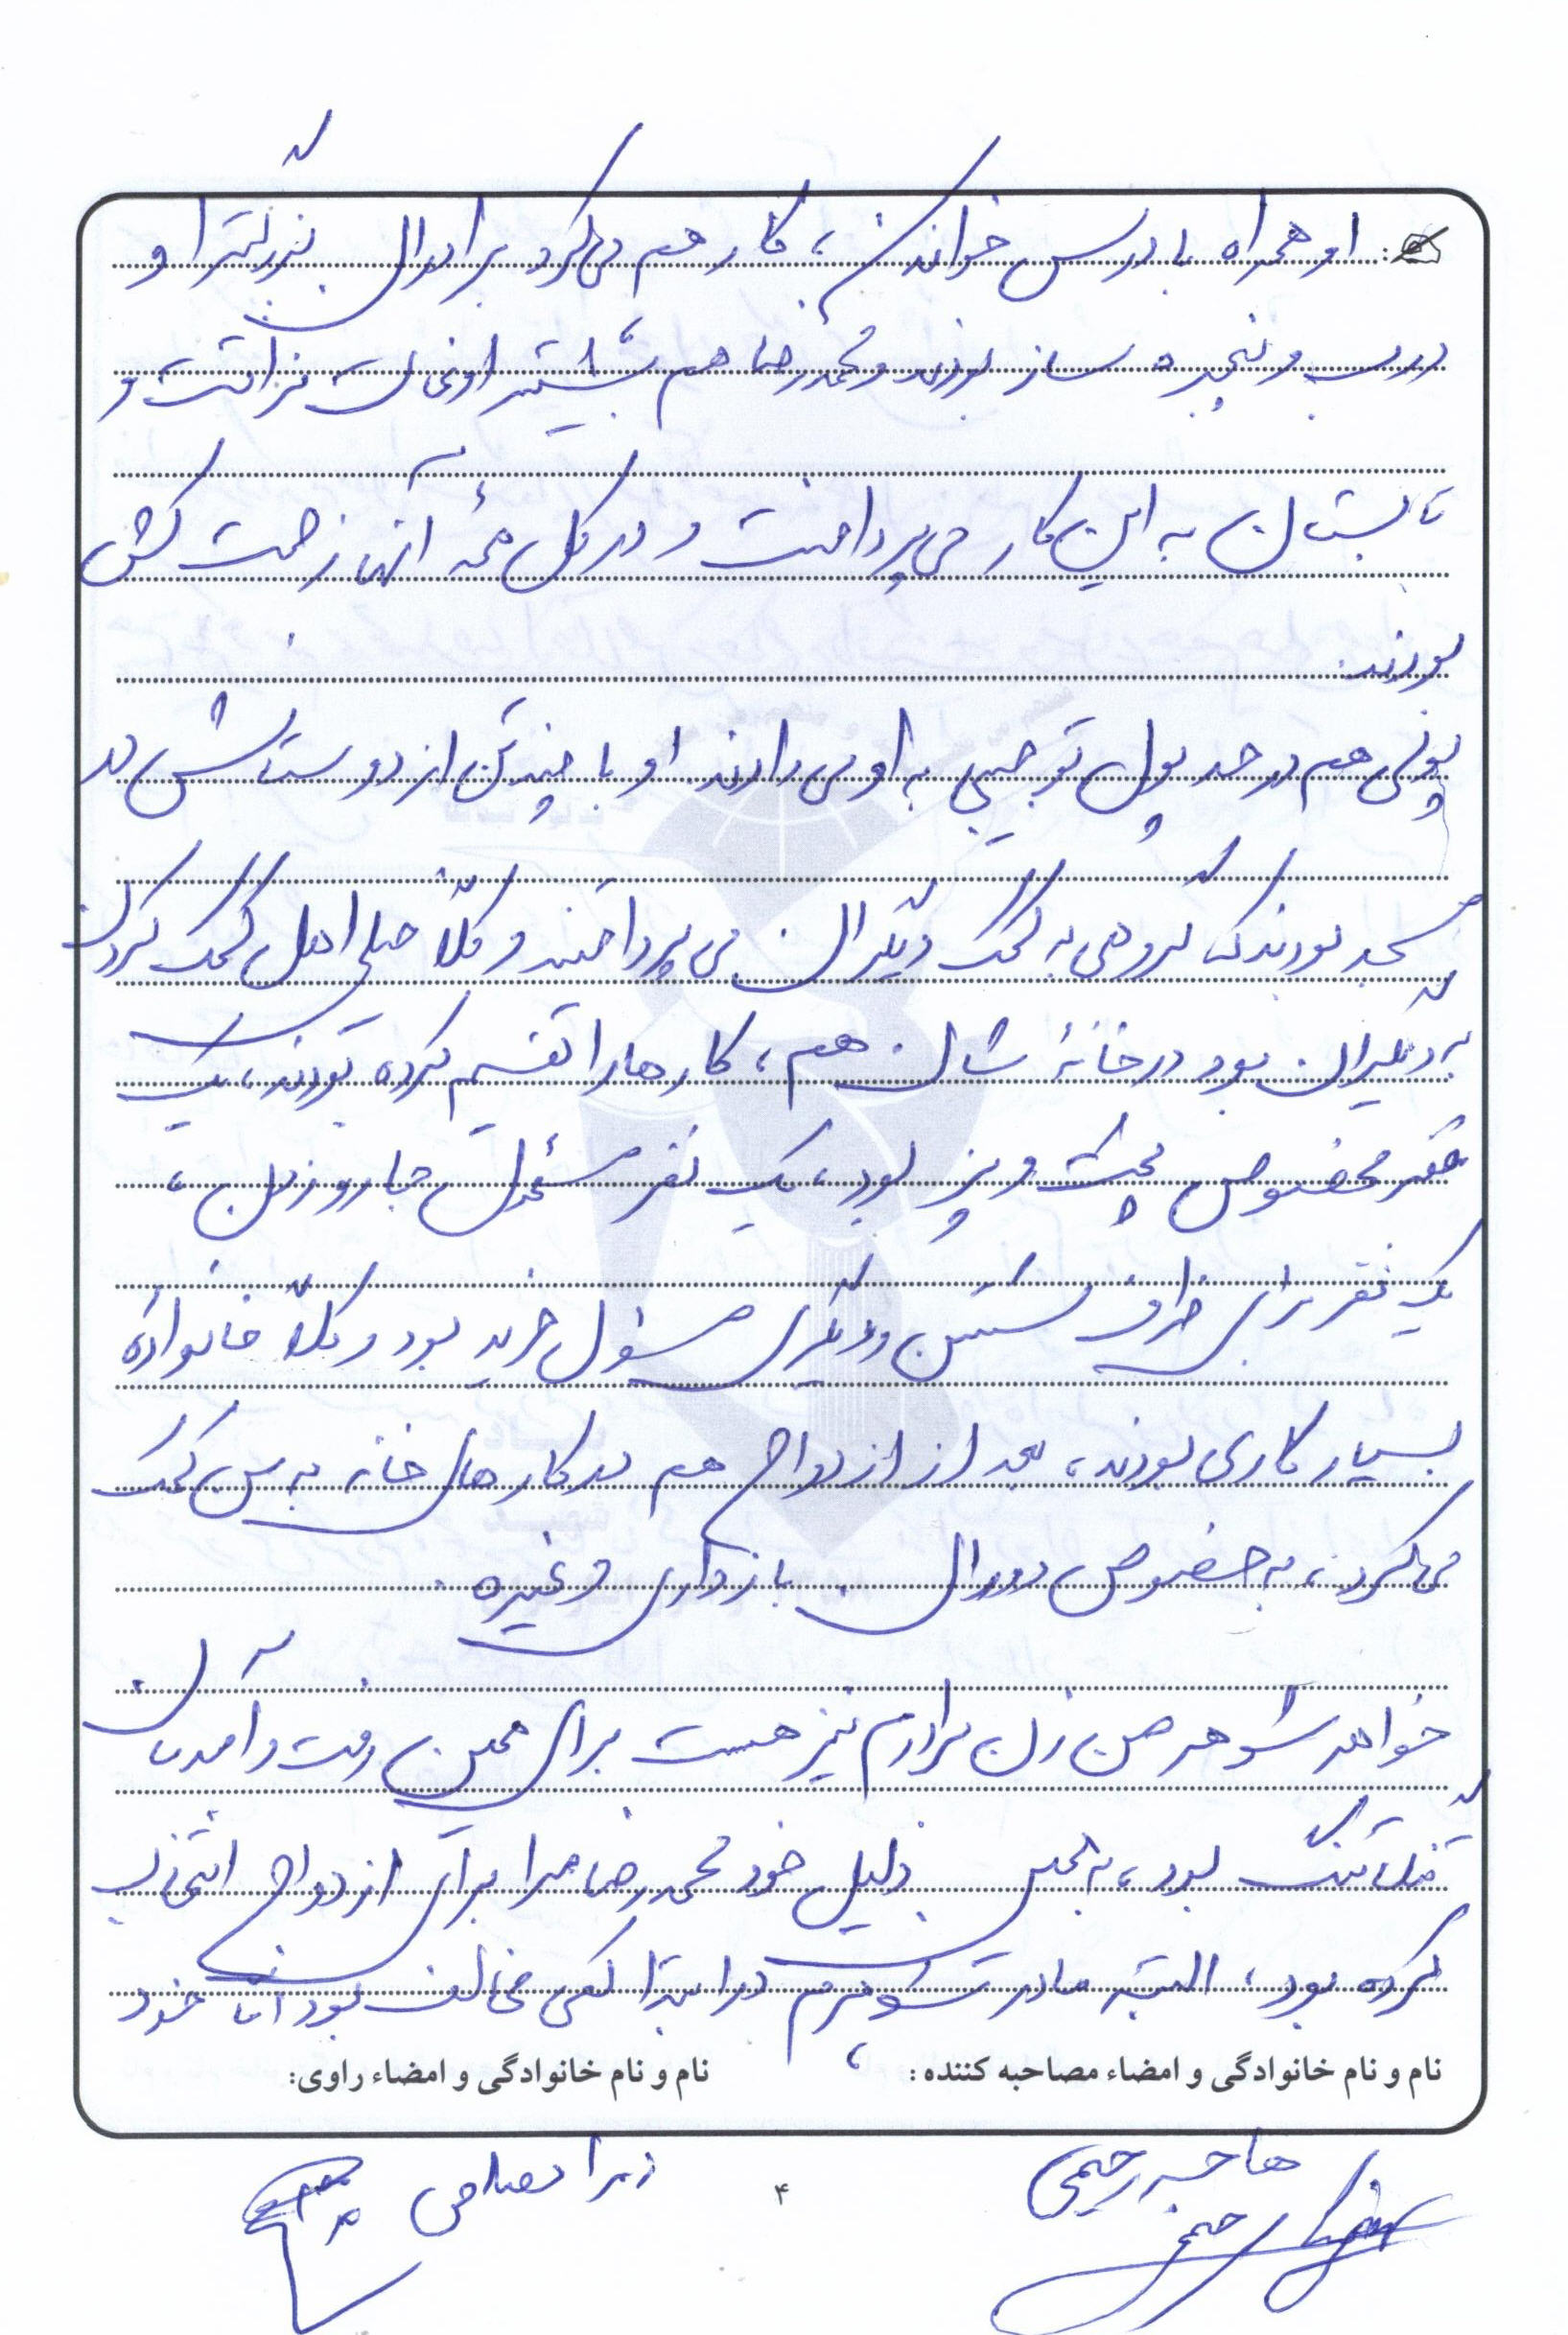 او همراه با درس خواندنش، کار هم می‌کرد برادران بزرگتر او
درب و پنجره ساز بودند و محمدرضا هم بیشتر اوقات فراغت و
تابستان به این کار می‌پرداخت و در کل همه آنها زحمت کش
بودند.
پولی هم در حد پول توجیبی به او می‌دادند. او با چند تن از دوستانش در
مسجد بودند که گروهی به کمک دیگران می‌پرداختند و کلاً خیلی اهل کمک کردن
به دیگران بود در خانۀ شان هم، کارها را تقسیم کرده بودند، یک
نفر مخصوص پخت و پز بود، یک نفر مسئول جارو زدن،
یک نفر برای ظرف شستن و دیگری مسئول خرید بود و کلاً خانواده
بسیار کاری بودند، بعد از ازدواج هم در کارهای خانه به من کمک
می‌کرد، به خصوص دوران بارداری و غیره.
خواهر شوهر من زن برادرم نیز هست برای همین رفت و آمدمان
تنگاتنگ بود، به همین دلیل خود محمدرضا مرا برای ازدواج انتخاب
کرده بود، البته مادر شوهرم در ابتدا کمی مخالف بود اما خود
نام و نام خانوادگی و امضاء مصاحبه کننده: نام و نام خانوادگی و امضاء راوی:
هاجر رحیمی زهرا
رحیمی
۴